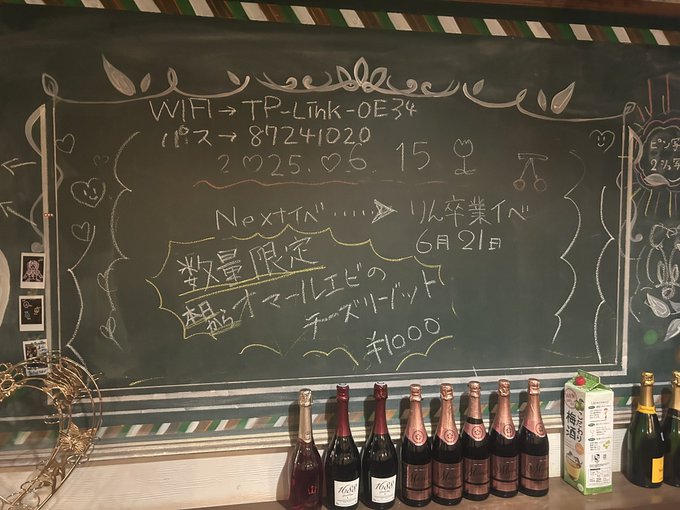 WIFI→TP-Link-0E34
パス→87241020
2♡025.♡6.15
Nextイベ‥‥‥→りん卒業イベ
6月21日
数量限定
本日から オマールエビの
チーズリゾット
¥1000
ピン写
2ショ写
1688
1688
梅酒